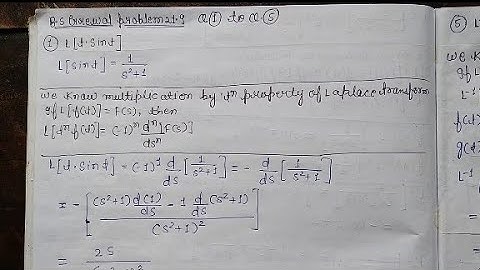 B.S Grewal problem 21.3 Q① to Q⑤
① L[t·sint]
L[sint] = 1/(s²+1)
we know multiplication by tⁿ property of Laplace transform
If L[f(t)] = F(s), then
L[tⁿf(t)] = (-1)ⁿ dⁿ/dsⁿ [F(s)]
L[t·sint] = (-1)¹ d/ds [1/(s²+1)] = - d/ds [1/(s²+1)]
= - [((s²+1) d(1)/ds - 1 d/ds (s²+1)) / (s²+1)²]
= 2s
⑤ L
we k
If L
L⁻¹
f(t)
g(t)
L⁻¹
=